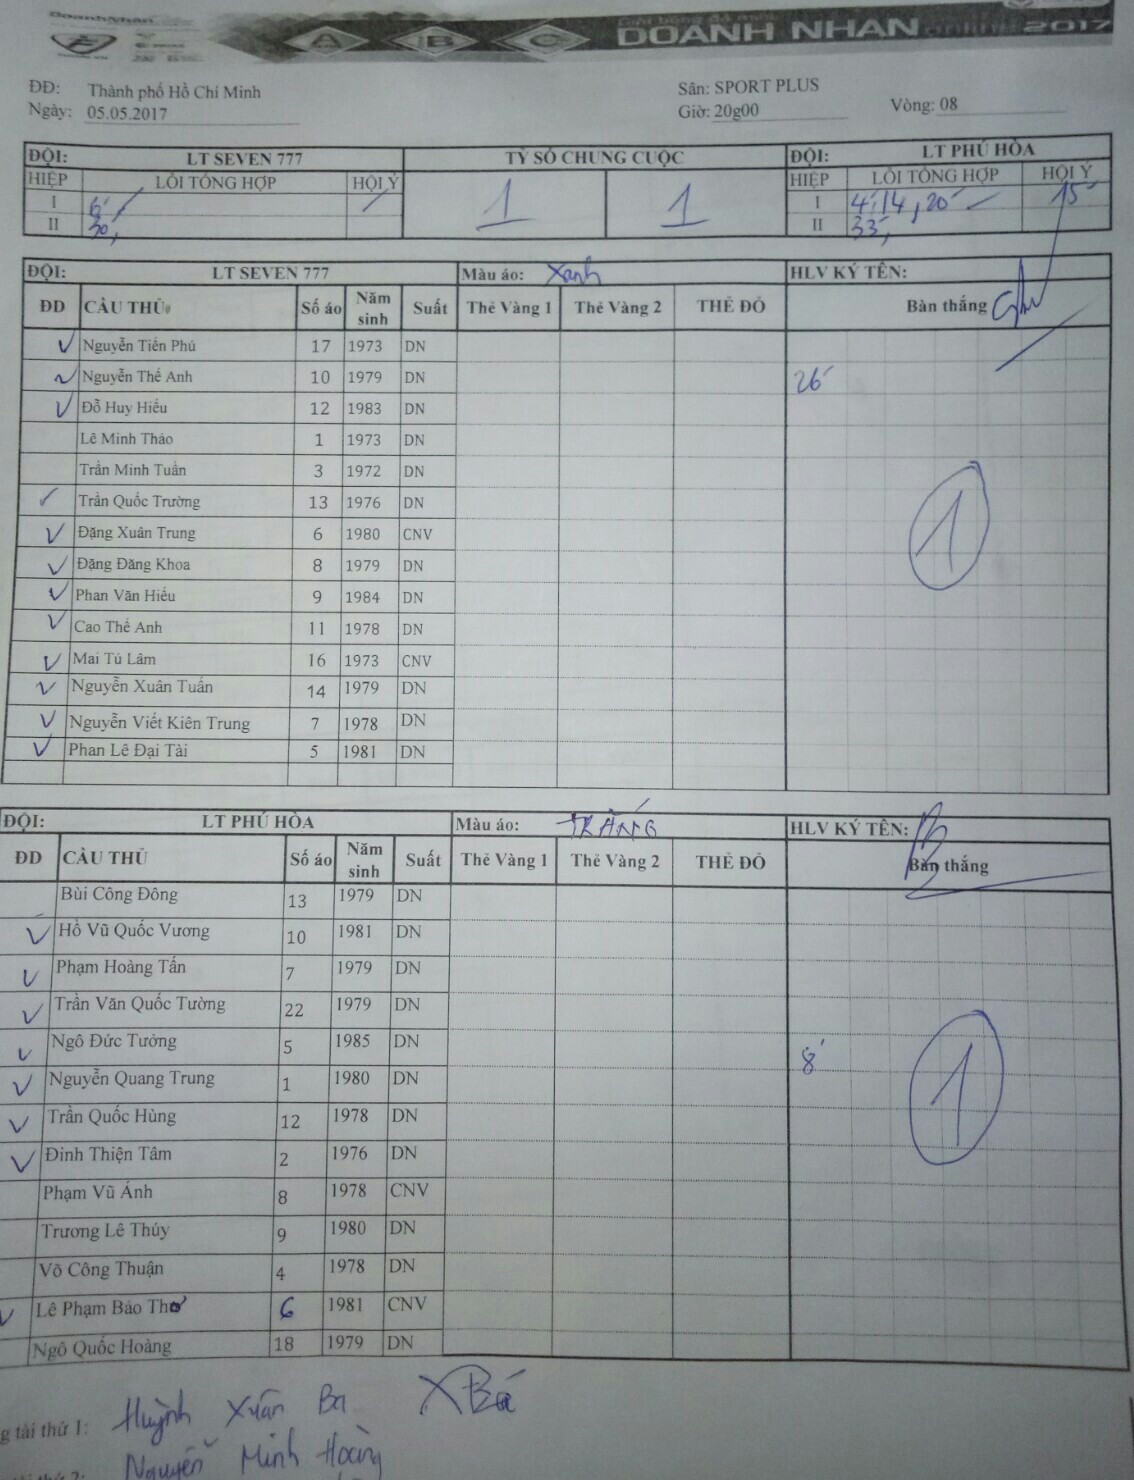 DoanhNhân
A B C
Giải bóng đá mini
DOANH NHAN online 2017
ĐĐ: Thành phố Hồ Chí Minh
Sân: SPORT PLUS
Ngày: 05.05.2017
Giờ: 20g00
Vòng: 08
ĐỘI: LT SEVEN 777
TỶ SỐ CHUNG CUỘC
ĐỘI: LT PHÚ HÒA
HIỆP LỖI TỔNG HỢP HỘI Ý
1 1
HIỆP LỖI TỔNG HỢP HỘI Ý
I 6'
I 4', 14', 20' 15'
II 30'
II 33'
ĐỘI: LT SEVEN 777 Màu áo: Xanh HLV KÝ TÊN:
ĐD CẦU THỦ Số áo Năm sinh Suất Thẻ Vàng 1 Thẻ Vàng 2 THẺ ĐỎ Bàn thắng
Nguyễn Tiến Phú 17 1973 DN
Nguyễn Thế Anh 10 1979 DN 26'
Đỗ Huy Hiếu 12 1983 DN
Lê Minh Thảo 1 1973 DN
Trần Minh Tuấn 3 1972 DN
Trần Quốc Trường 13 1976 DN
Đặng Xuân Trung 6 1980 CNV 1
Đặng Đăng Khoa 8 1979 DN
Phan Văn Hiếu 9 1984 DN
Cao Thế Anh 11 1978 DN
Mai Tú Lâm 16 1973 CNV
Nguyễn Xuân Tuấn 14 1979 DN
Nguyễn Viết Kiên Trung 7 1978 DN
Phan Lê Đại Tài 5 1981 DN
ĐỘI: LT PHÚ HÒA Màu áo: TRẮNG HLV KÝ TÊN:
ĐD CẦU THỦ Số áo Năm sinh Suất Thẻ Vàng 1 Thẻ Vàng 2 THẺ ĐỎ Bàn thắng
Bùi Công Đông 13 1979 DN
Hồ Vũ Quốc Vương 10 1981 DN
Phạm Hoàng Tấn 7 1979 DN
Trần Văn Quốc Tường 22 1979 DN
Ngô Đức Tưởng 5 1985 DN 8'
Nguyễn Quang Trung 1 1980 DN 1
Trần Quốc Hùng 12 1978 DN
Đinh Thiện Tâm 2 1976 DN
Phạm Vũ Ánh 8 1978 CNV
Trương Lê Thúy 9 1980 DN
Võ Công Thuận 4 1978 DN
Lê Phạm Bảo Thơ 6 1981 CNV
Ngô Quốc Hoàng 18 1979 DN
g tài thứ 1: Huỳnh Xuân Ba XBá
Nguyễn Minh Hoàng